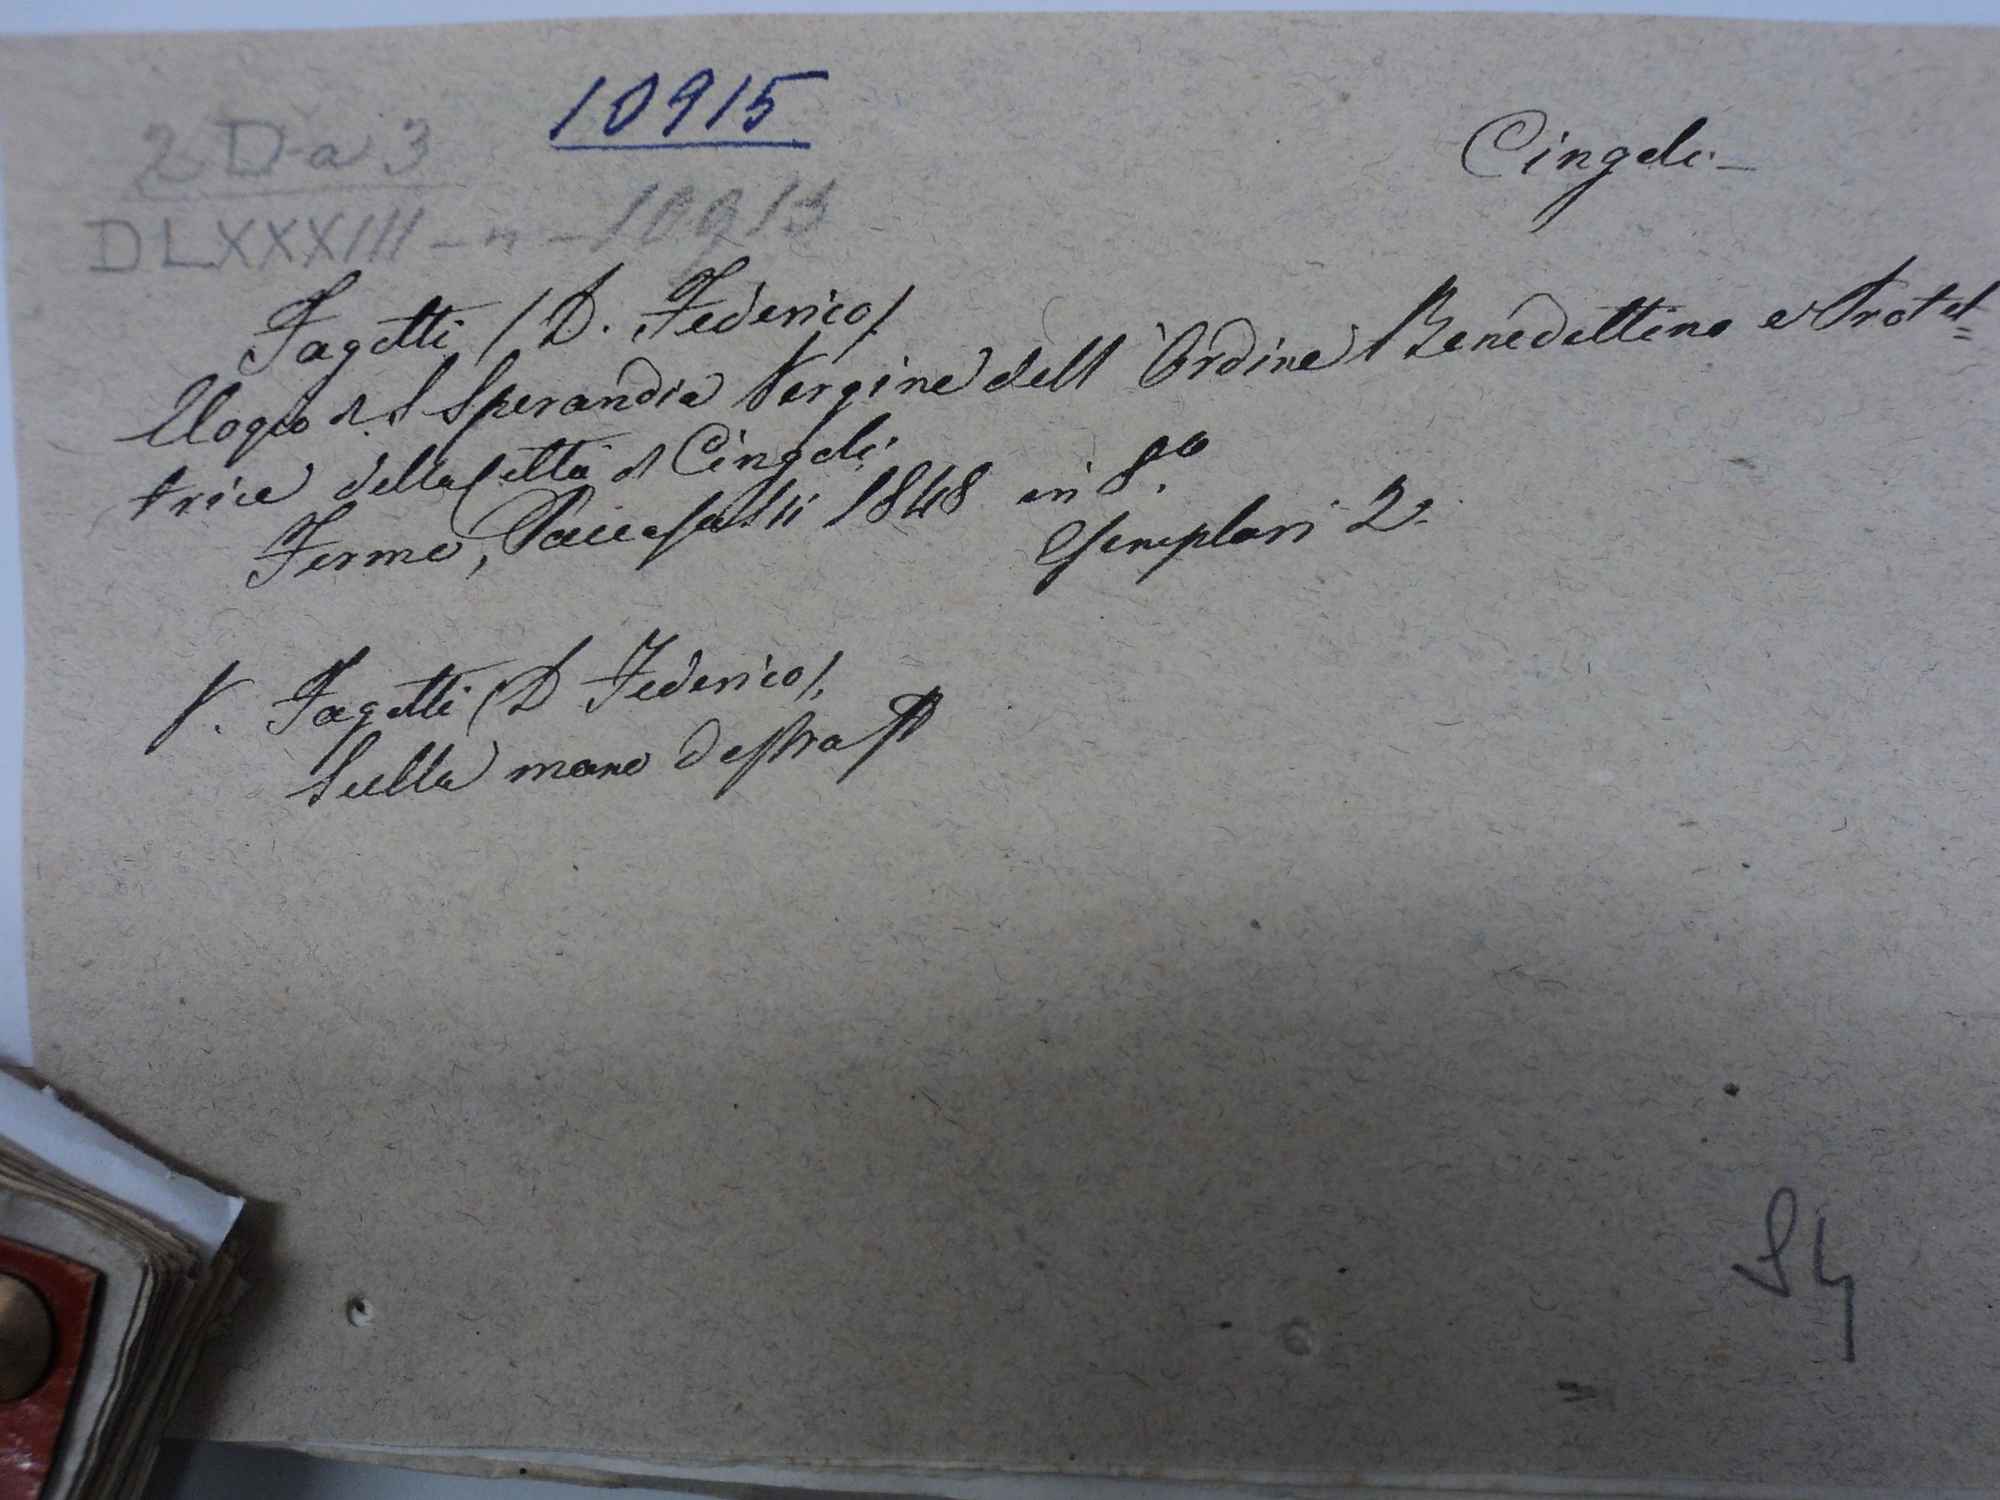 10915
Cingoli -
2 D-a 3
DLXXXIII - n - 10913
Fagetti (D. Federico)
Elogio di S Sperandia Vergine dell'Ordine Benedettino e Protet=
trice della Città di Cingoli
Fermo, Paccasassi 1848 in 8.vo
Esemplari 2.
V. Fagetti (D Federico).
Sulla mano destra